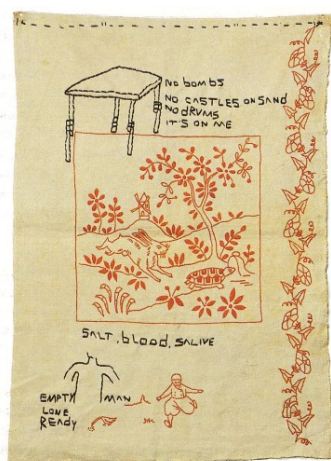 NO bOMbS
NO CASTLES ON SAND
NO dRUMS
IT'S ON ME
SALT, blood, SALIVE
EMPTY MAN
LONE
REAdy